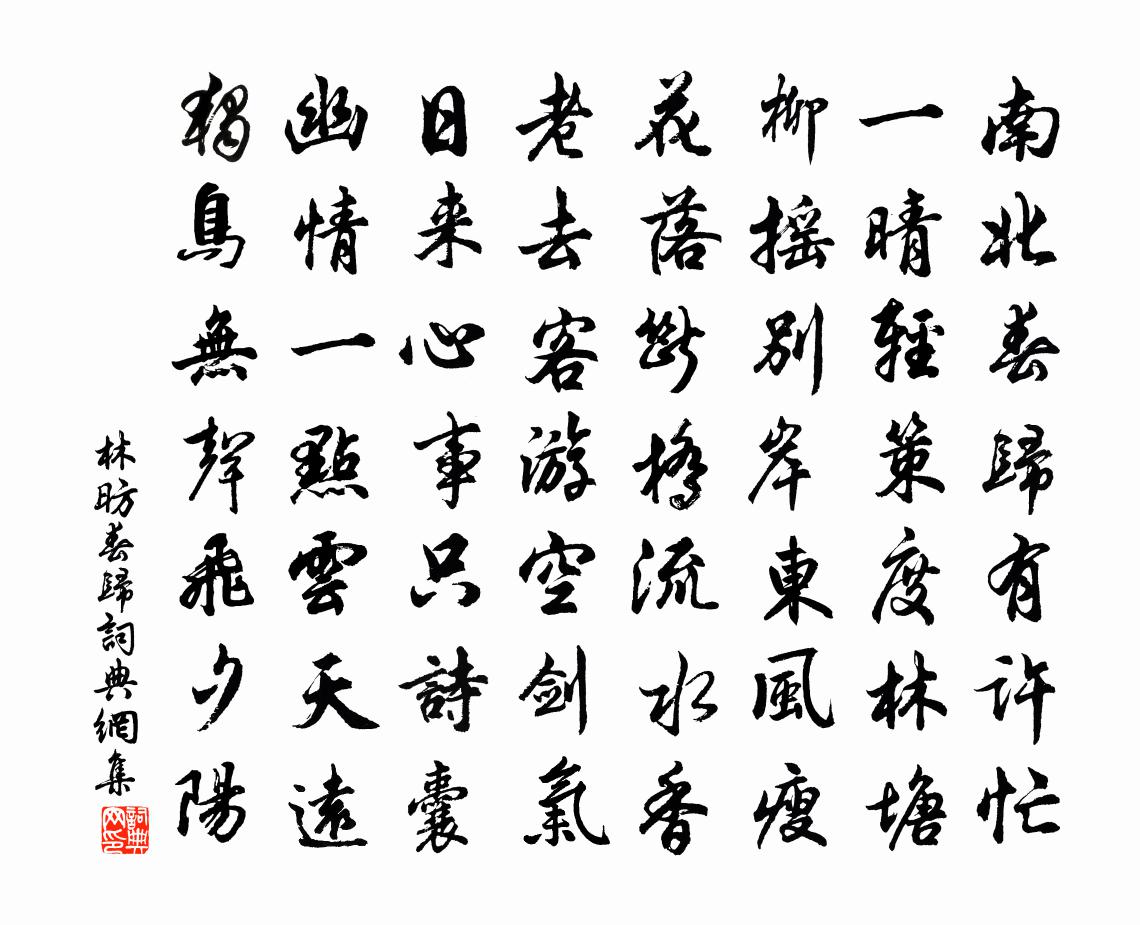 南北春歸有許忙
一晴輕策度林塘
柳摇別岸東風瘦
花落斷橋流水香
老去客游空劍氣
日来心事只詩囊
幽情一點雲天遠
獨鳥無聲飛夕陽
林昉春歸詞典網集
詞典网印